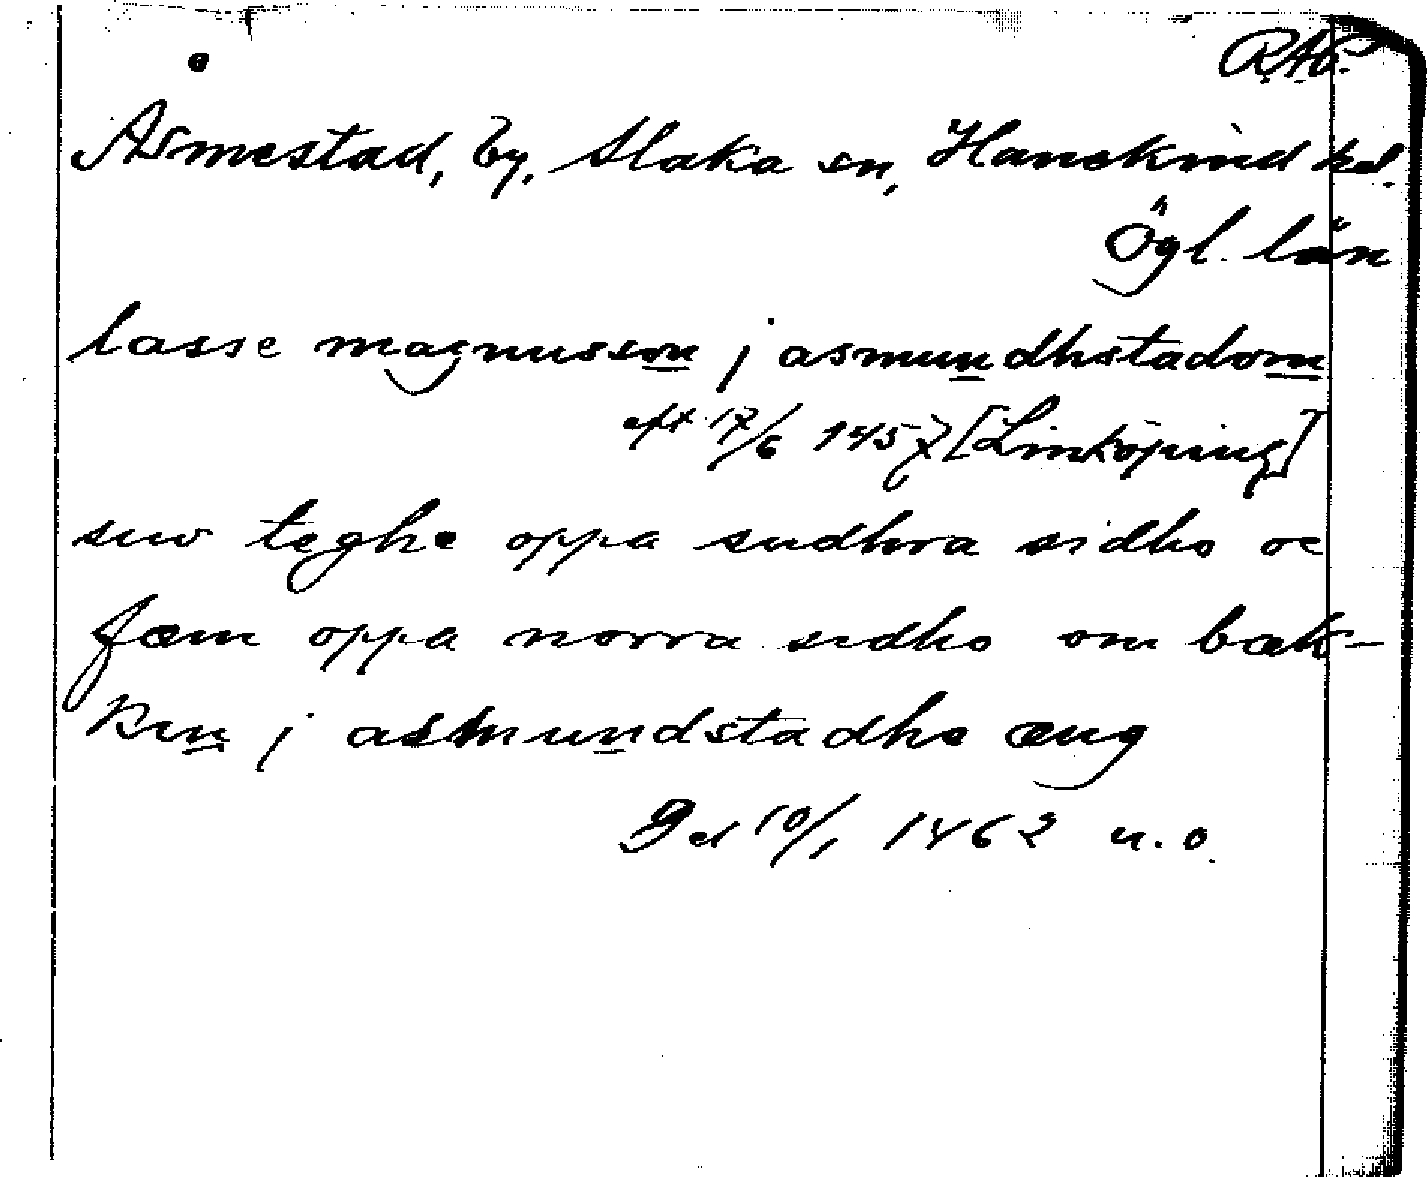 RAP.
Åsmestad, by, Slaka sn, Hanekind hd.
Ögl. län
lasse magnusson j asmundhstadom
eft 17/6 1457 [Linköping]
siw teghe oppa sudhra sidho oc
fæm oppa norra sidho om bæk-
ken j asmundstadha æng
Gd 10/1 1462 u.o.